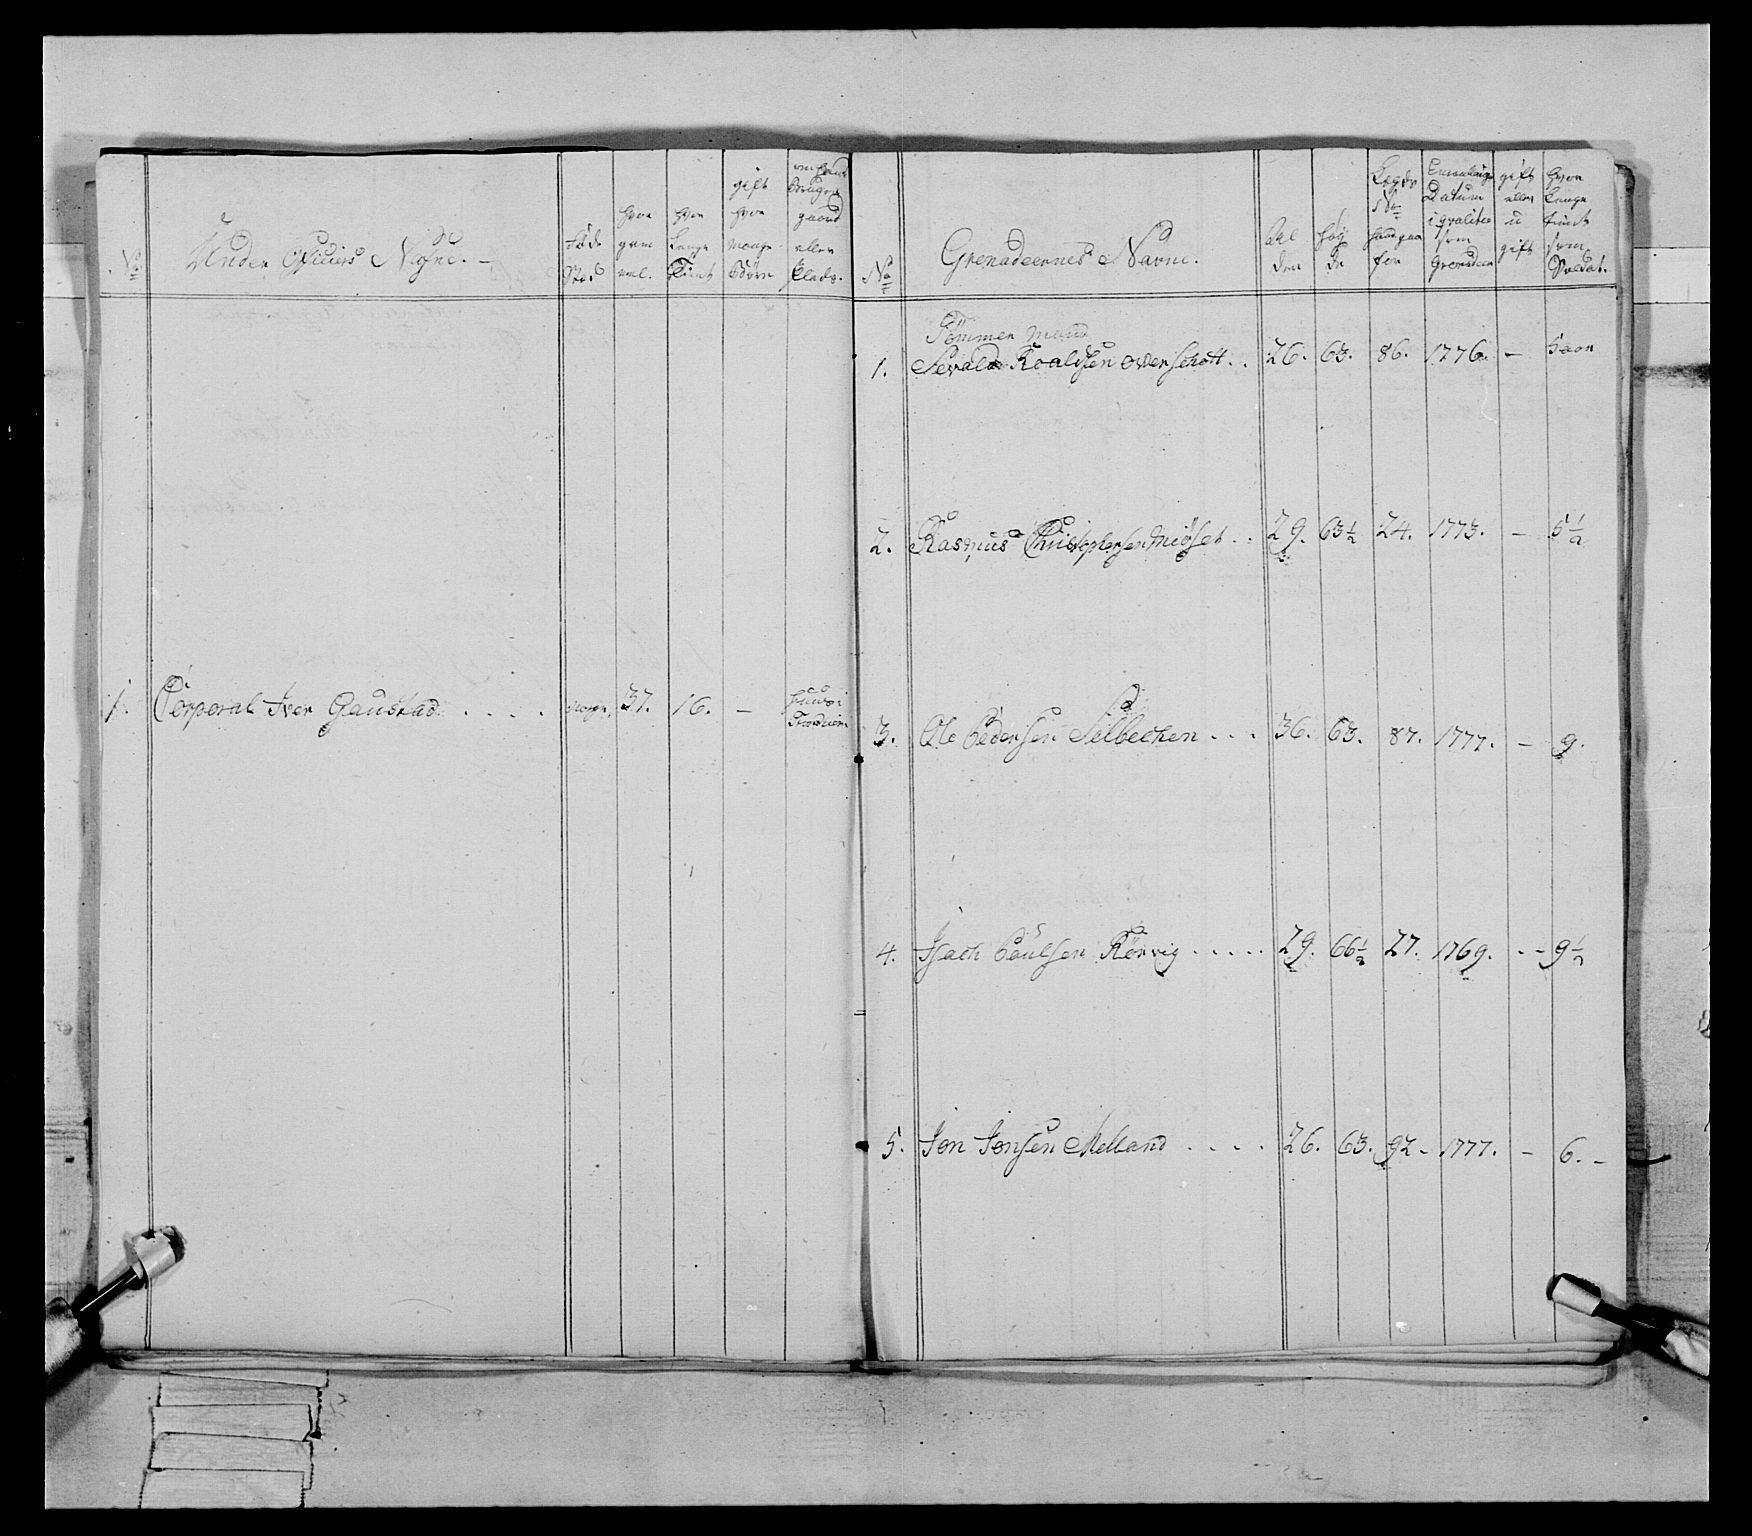 No
Under Officiers Nafne.
Føde Sted
hvor gammel.
hvor Lenge Tient
gift hvor mange Børn
gaard eller Plads.
1. Corporal Iver Gaustad . . . . Norge, 37. 16. –
No
Grenadeernes Navne.
Alder
Høyde
Legds No hand gaar for
Datum i qvalitee som Grenadeer
gift eller u gift
hvor Lenge tient som Soldat.
Tømmer Mand
1. Sevald Roaldsen Overschott . . 26. 63. 86. 1776. – 5 aar
2. Rasmus Christophersen Miøset . . 29. 63½ 24. 1773. – 5½
3. Ole Pedersen Selbechen . . . 36. 63. 87. 1777. – 9.
4. Isach Poulsen Rørvig . . . . . 29. 66½ 27. 1769. – 9½
5. Jon Jonsen Melland . . . . 26. 63. 92 – 1777. – 6. –